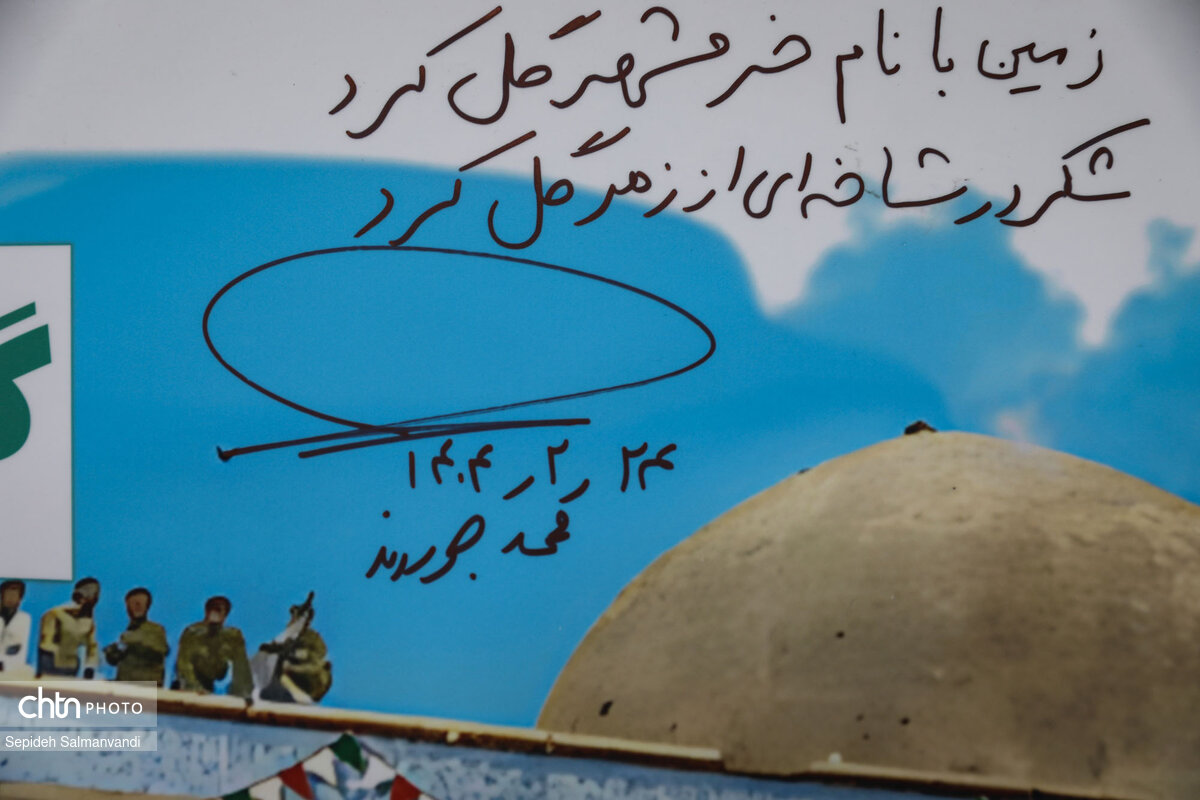 زمین با نام خرمشهر گل کرد
شکر در شاخه‌ای از زهر گل کرد
۲۴ ر ۲ ر ۱۴۰۴
محمد
chtn PHOTO
Sepideh Salmanvandi